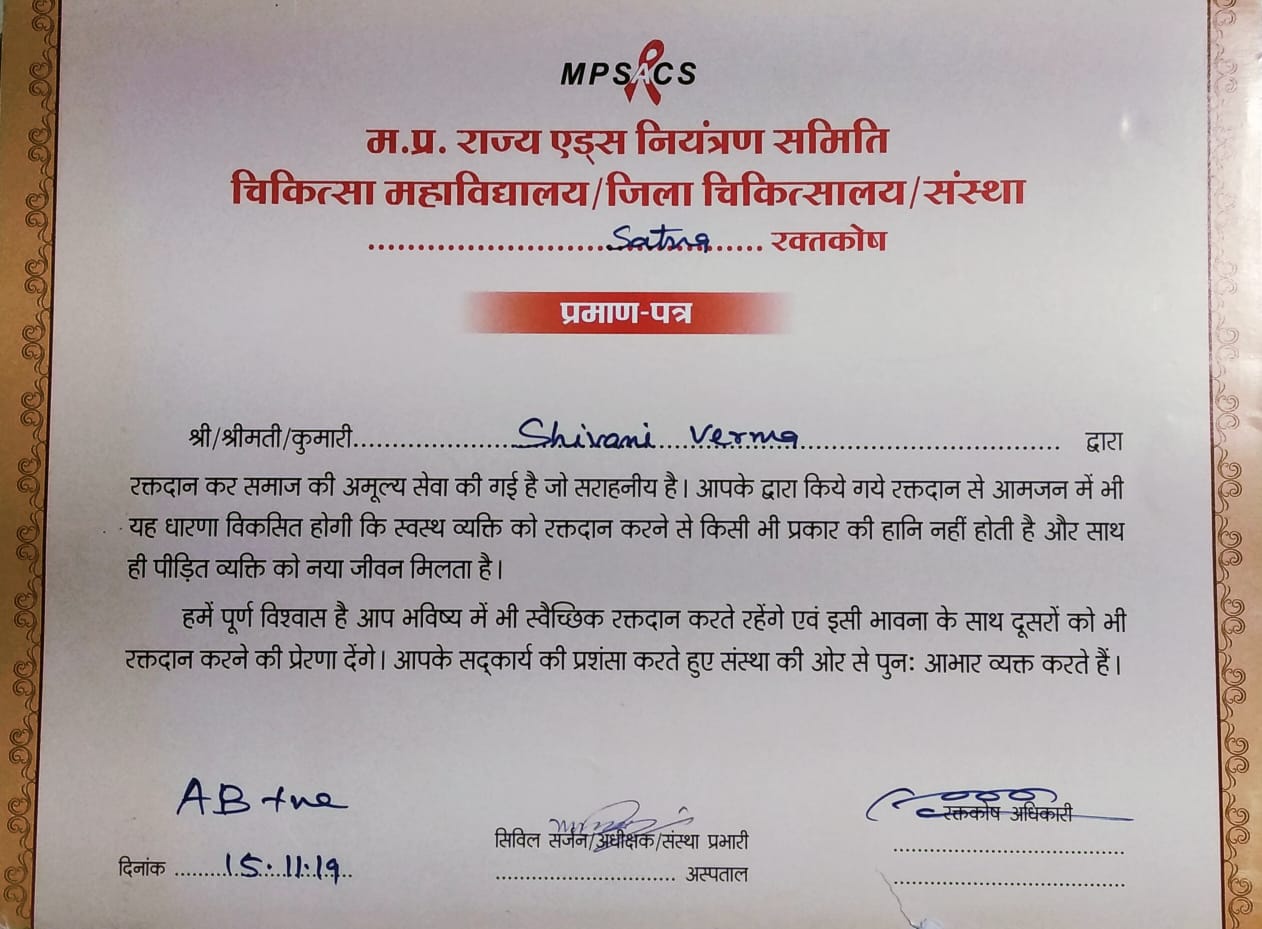 MPSACS
म.प्र. राज्य एड्स नियंत्रण समिति
चिकित्सा महाविद्यालय/जिला चिकित्सालय/संस्था
.................................Satna....... रक्तकोष
प्रमाण-पत्र
श्री/श्रीमती/कुमारी....................Shivani Verma.................................... द्वारा
रक्तदान कर समाज की अमूल्य सेवा की गई है जो सराहनीय है। आपके द्वारा किये गये रक्तदान से आमजन में भी
यह धारणा विकसित होगी कि स्वस्थ व्यक्ति को रक्तदान करने से किसी भी प्रकार की हानि नहीं होती है और साथ
ही पीड़ित व्यक्ति को नया जीवन मिलता है।
हमें पूर्ण विश्वास है आप भविष्य में भी स्वैच्छिक रक्तदान करते रहेंगे एवं इसी भावना के साथ दूसरों को भी
रक्तदान करने की प्रेरणा देंगे। आपके सद्कार्य की प्रशंसा करते हुए संस्था की ओर से पुनः आभार व्यक्त करते हैं।
AB +ve
रक्तकोष अधिकारी
सिविल सर्जन/अधीक्षक/संस्था प्रभारी
दिनांक ........15.11.19..
.............................. अस्पताल